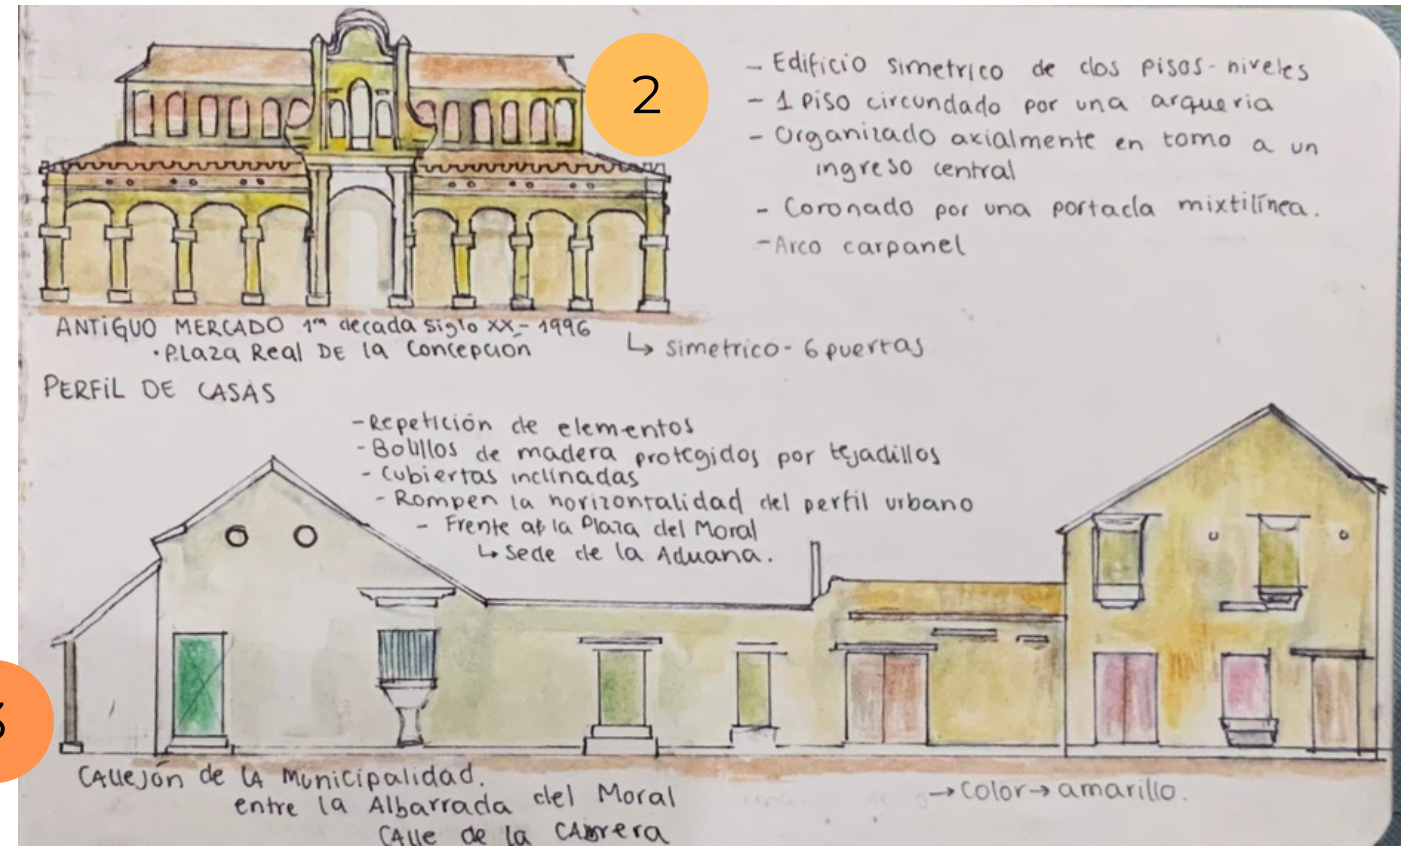 2
- Edificio simetrico de dos pisos-niveles
- 1 Piso circundado por una arqueria
- Organizado axialmente en torno a un
ingreso central
- Coronado por una portada mixtilínea.
- Arco carpanel
ANTIGUO MERCADO 1ra decada siglo XX - 1996
• Plaza Real DE la Concepción
↳ simetrico - 6 puertas
PERFIL DE CASAS
- Repetición de elementos
- Bolillos de madera protegidos por tejadillos
- Cubiertas inclinadas
- Rompen la horizontalidad del perfil urbano
- Frente a la Plaza del Moral
↳ Sede de la Aduana.
CALLEjón de LA Municipalidad.
entre la Albarrada del Moral
CAlle de la CAbrera
→ Color → amarillo.